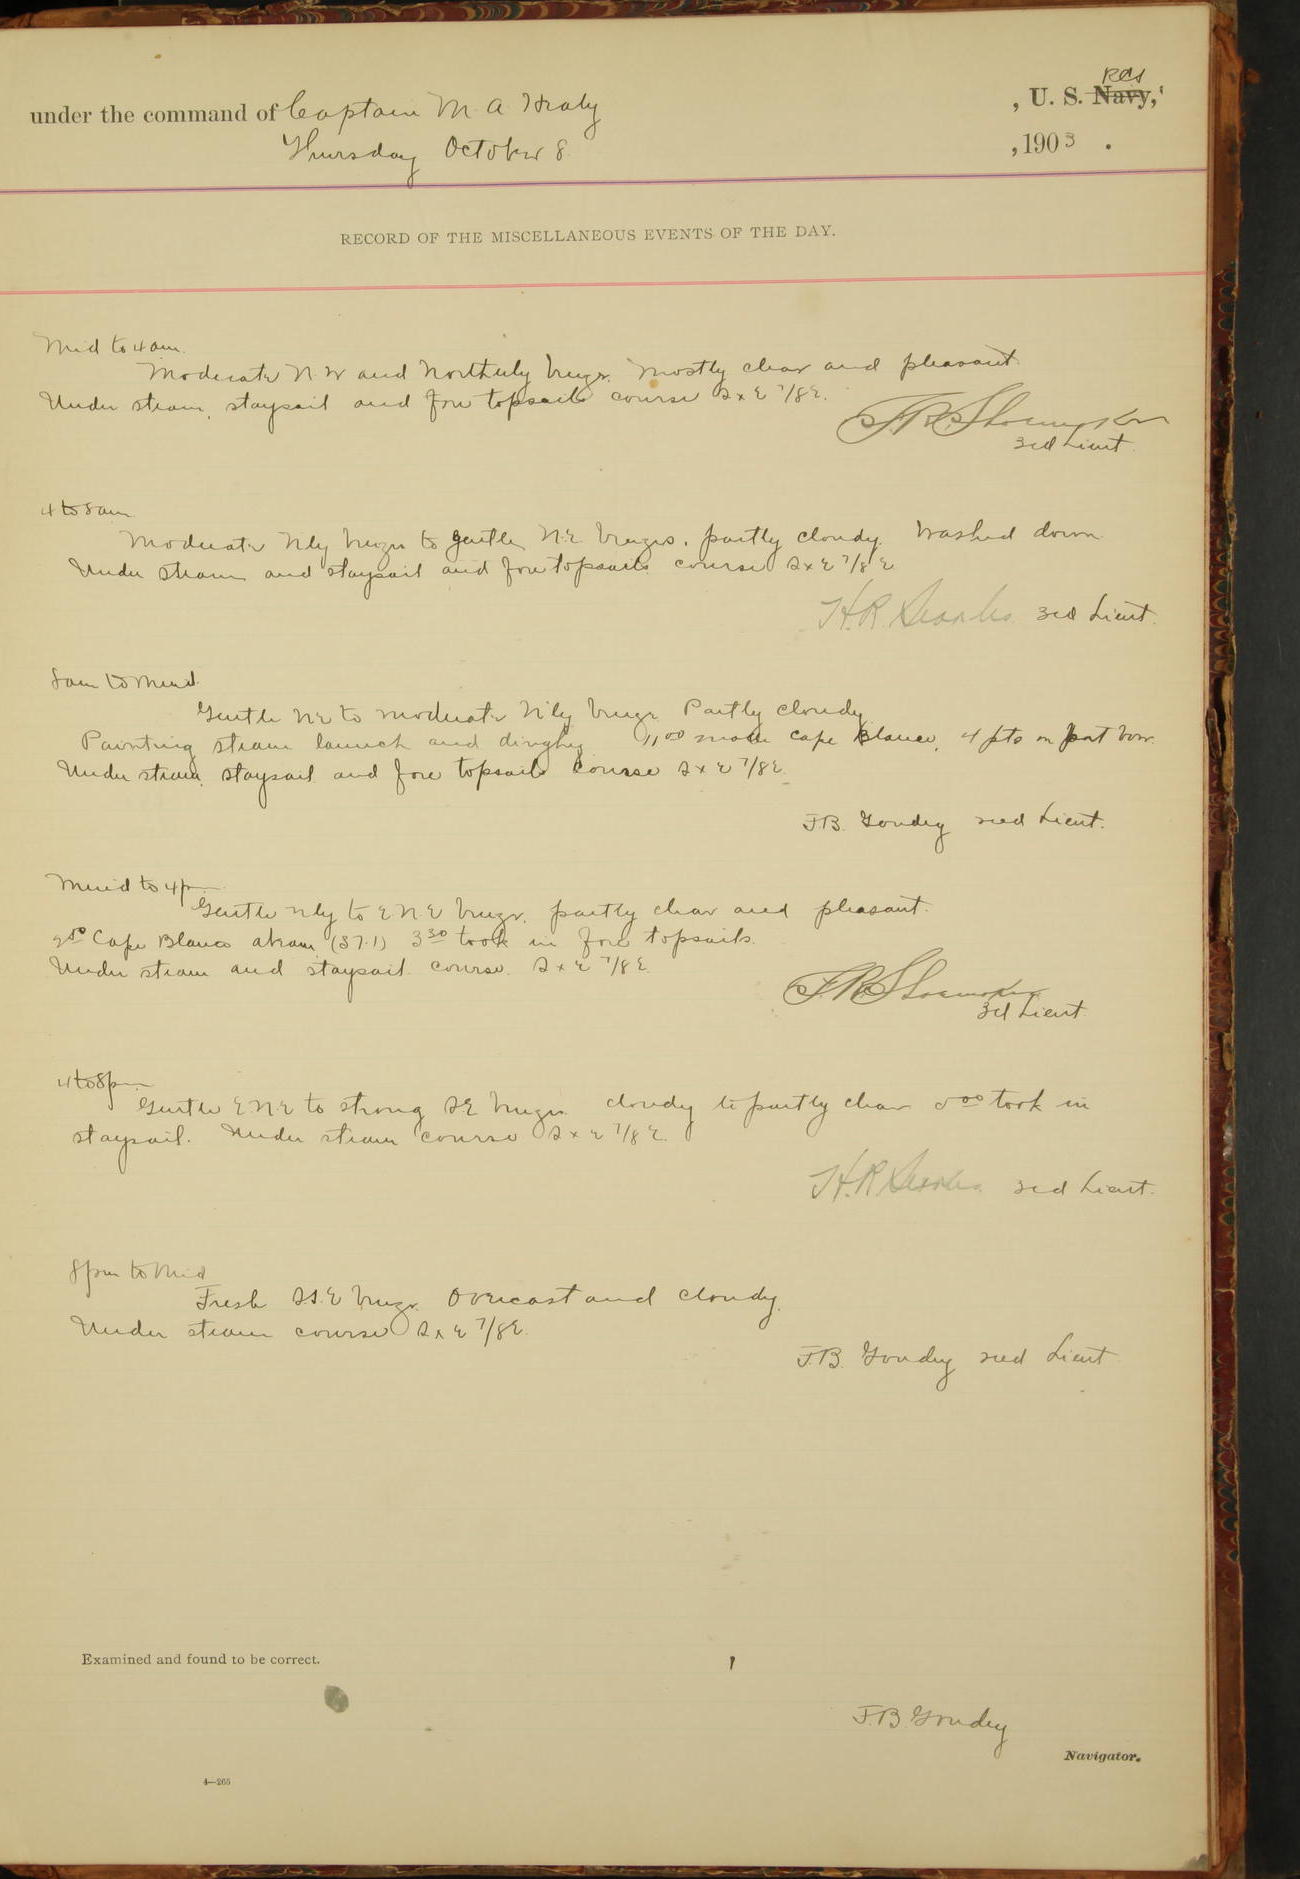 RCS
under the command of Captain M. A. Healy, U. S. Navy,
Thursday October 8, 1903.
RECORD OF THE MISCELLANEOUS EVENTS OF THE DAY.
Mid to 4 am.
Moderate N.W and Northerly breeze. Mostly clear and pleasant.
Under steam, staysail and fore topsails course S x E 7/8 E.
F.R. Shoemaker
3rd Lieut.
4 to 8 am
Moderate N'ly breeze to gentle N.E breezes, partly cloudy. Washed down
Under steam and staysail and fore topsails course S x E 7/8 E
H.R. Searles 3rd Lieut.
8 am to Merid
Gentle NE to moderate N'ly breeze Partly cloudy
Painting steam launch and dinghy 11 00 made Cape Blanco, 4 pts on port bow.
Under steam, staysail and fore topsails course S x E 7/8 E.
J.B. 2nd Lieut.
Merid to 4 p
Gentle N'ly to E N E breeze, partly clear and pleasant.
2 00 Cape Blanco abeam (37.1) 3 30 took in fore topsails.
Under steam and staysail course S x E 7/8 E.
F.R. Shoemaker
3d Lieut
4 to 8 pm
Gentle E N E to strong S E breezes cloudy to partly clear 5 00 took in
staysail. Under steam course S x E 7/8 E.
H.R. Searles 3rd Lieut.
8 pm to Mid
Fresh S S.E breeze. Overcast and cloudy.
Under steam course S x E 7/8 E.
J.B. 2nd Lieut
Examined and found to be correct.
J.B.
Navigator.
4—265